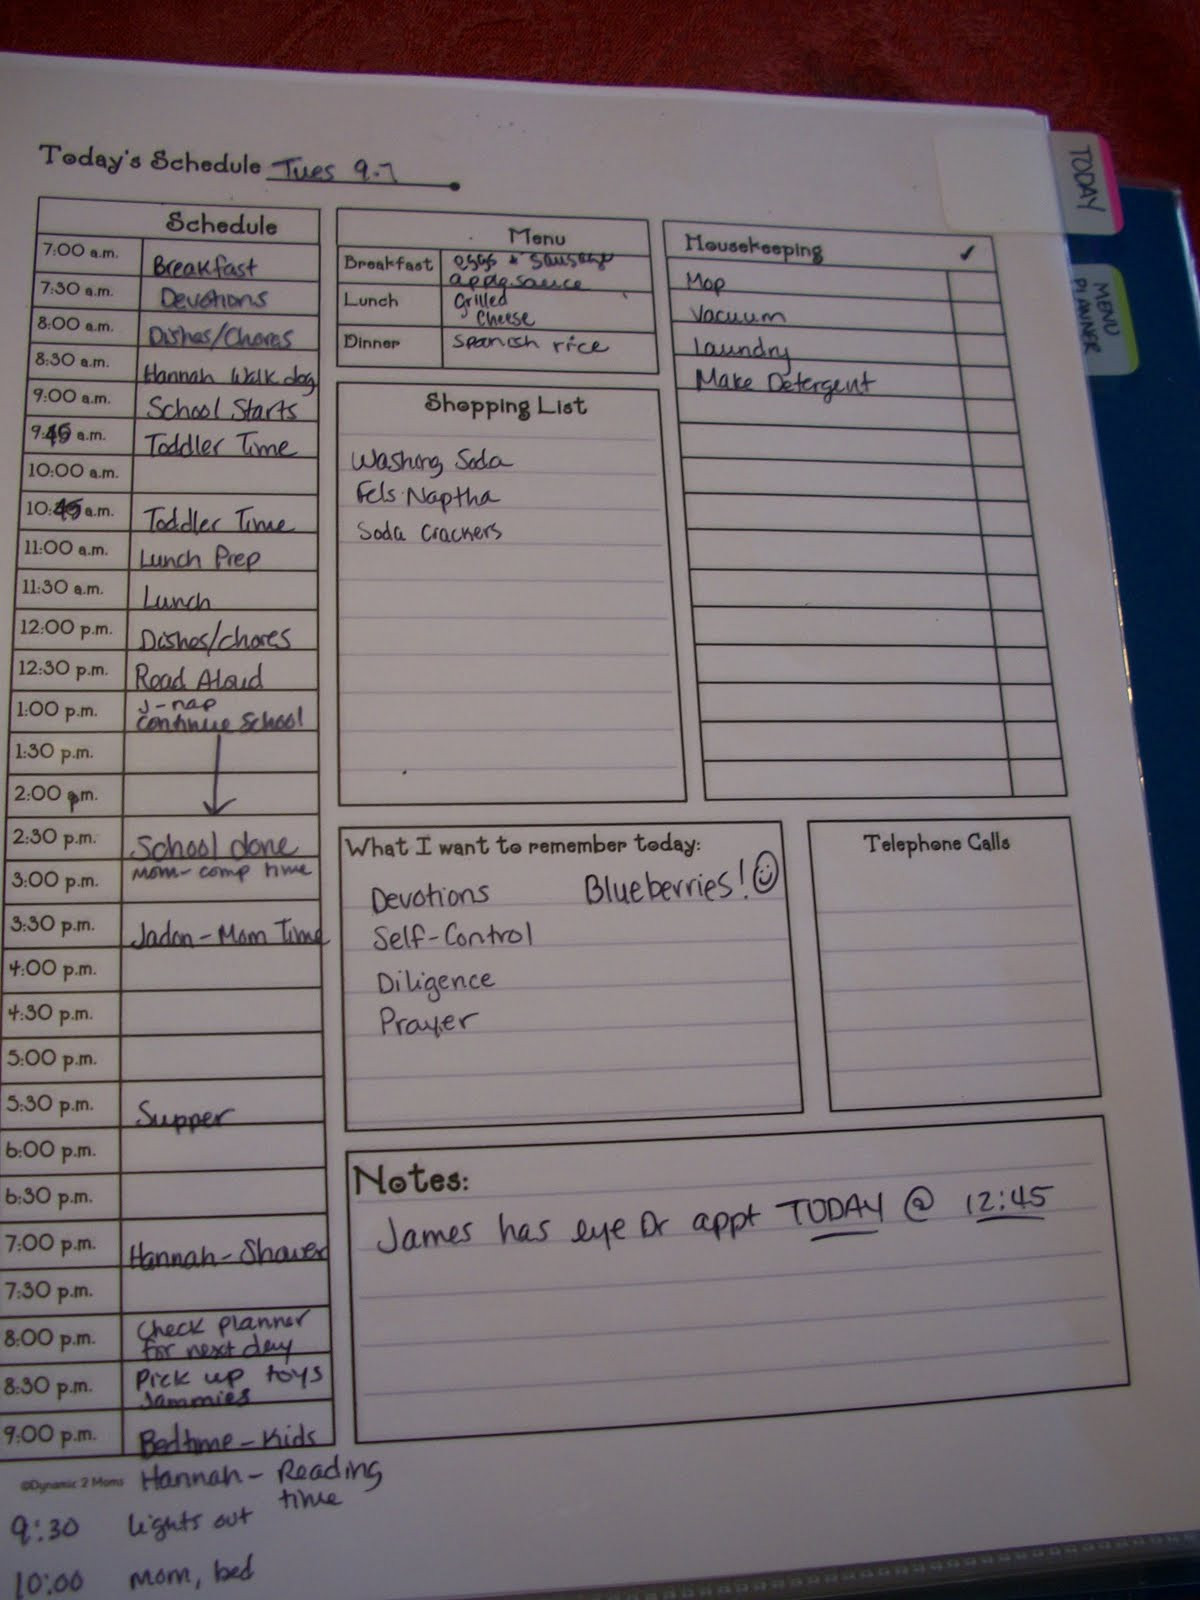 Today's Schedule Tues 9.7
TODAY
MENU PLANNER
Schedule
7:00 a.m. Breakfast
7:30 a.m. Devotions
8:00 a.m. Dishes/Chores
8:30 a.m. Hannah Walk dog
9:00 a.m. School Starts
9:45 a.m. Toddler Time
10:00 a.m.
10:45 a.m. Toddler Time
11:00 a.m. Lunch Prep
11:30 a.m. Lunch
12:00 p.m. Dishes/chores
12:30 p.m. Read Aloud
1:00 p.m. J-nap
continue School
1:30 p.m.
2:00 p.m.
2:30 p.m. School done
3:00 p.m. Mom-comp time
3:30 p.m. Jadon-Mom Time
4:00 p.m.
4:30 p.m.
5:00 p.m.
5:30 p.m. Supper
6:00 p.m.
6:30 p.m.
7:00 p.m. Hannah-Shower
7:30 p.m.
8:00 p.m. Check planner
for next day
8:30 p.m. Pick up toys
Jammies
9:00 p.m. Bedtime-Kids
©Dynamic 2 Moms Hannah- Reading
time
9:30 lights out
10:00 mom, bed
Menu
Breakfast eggs & sausage
applesauce
Lunch Grilled
Cheese
Dinner Spanish rice
Shopping List
Washing Soda
Fels-Naptha
Soda Crackers
Housekeeping ✓
Mop
Vacuum
Laundry
Make Detergent
What I want to remember today:
Devotions Blueberries!
Self-Control
Diligence
Prayer
Telephone Calls
Notes:
James has eye Dr appt TODAY @ 12:45